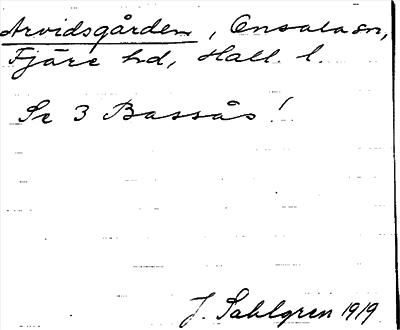 Arvidsgården, Onsala sn,
Fjäre hd, Hall. l.
Se 3 Bassås!
J. Sahlgren 1919